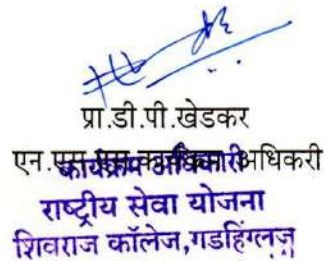 प्रा.डी.पी.खेडकर
एन.एस.एस.कार्यक्रम अधिकरी
कार्यक्रम अधिकारी
राष्ट्रीय सेवा योजना
शिवराज कॉलेज,गडहिंग्लज